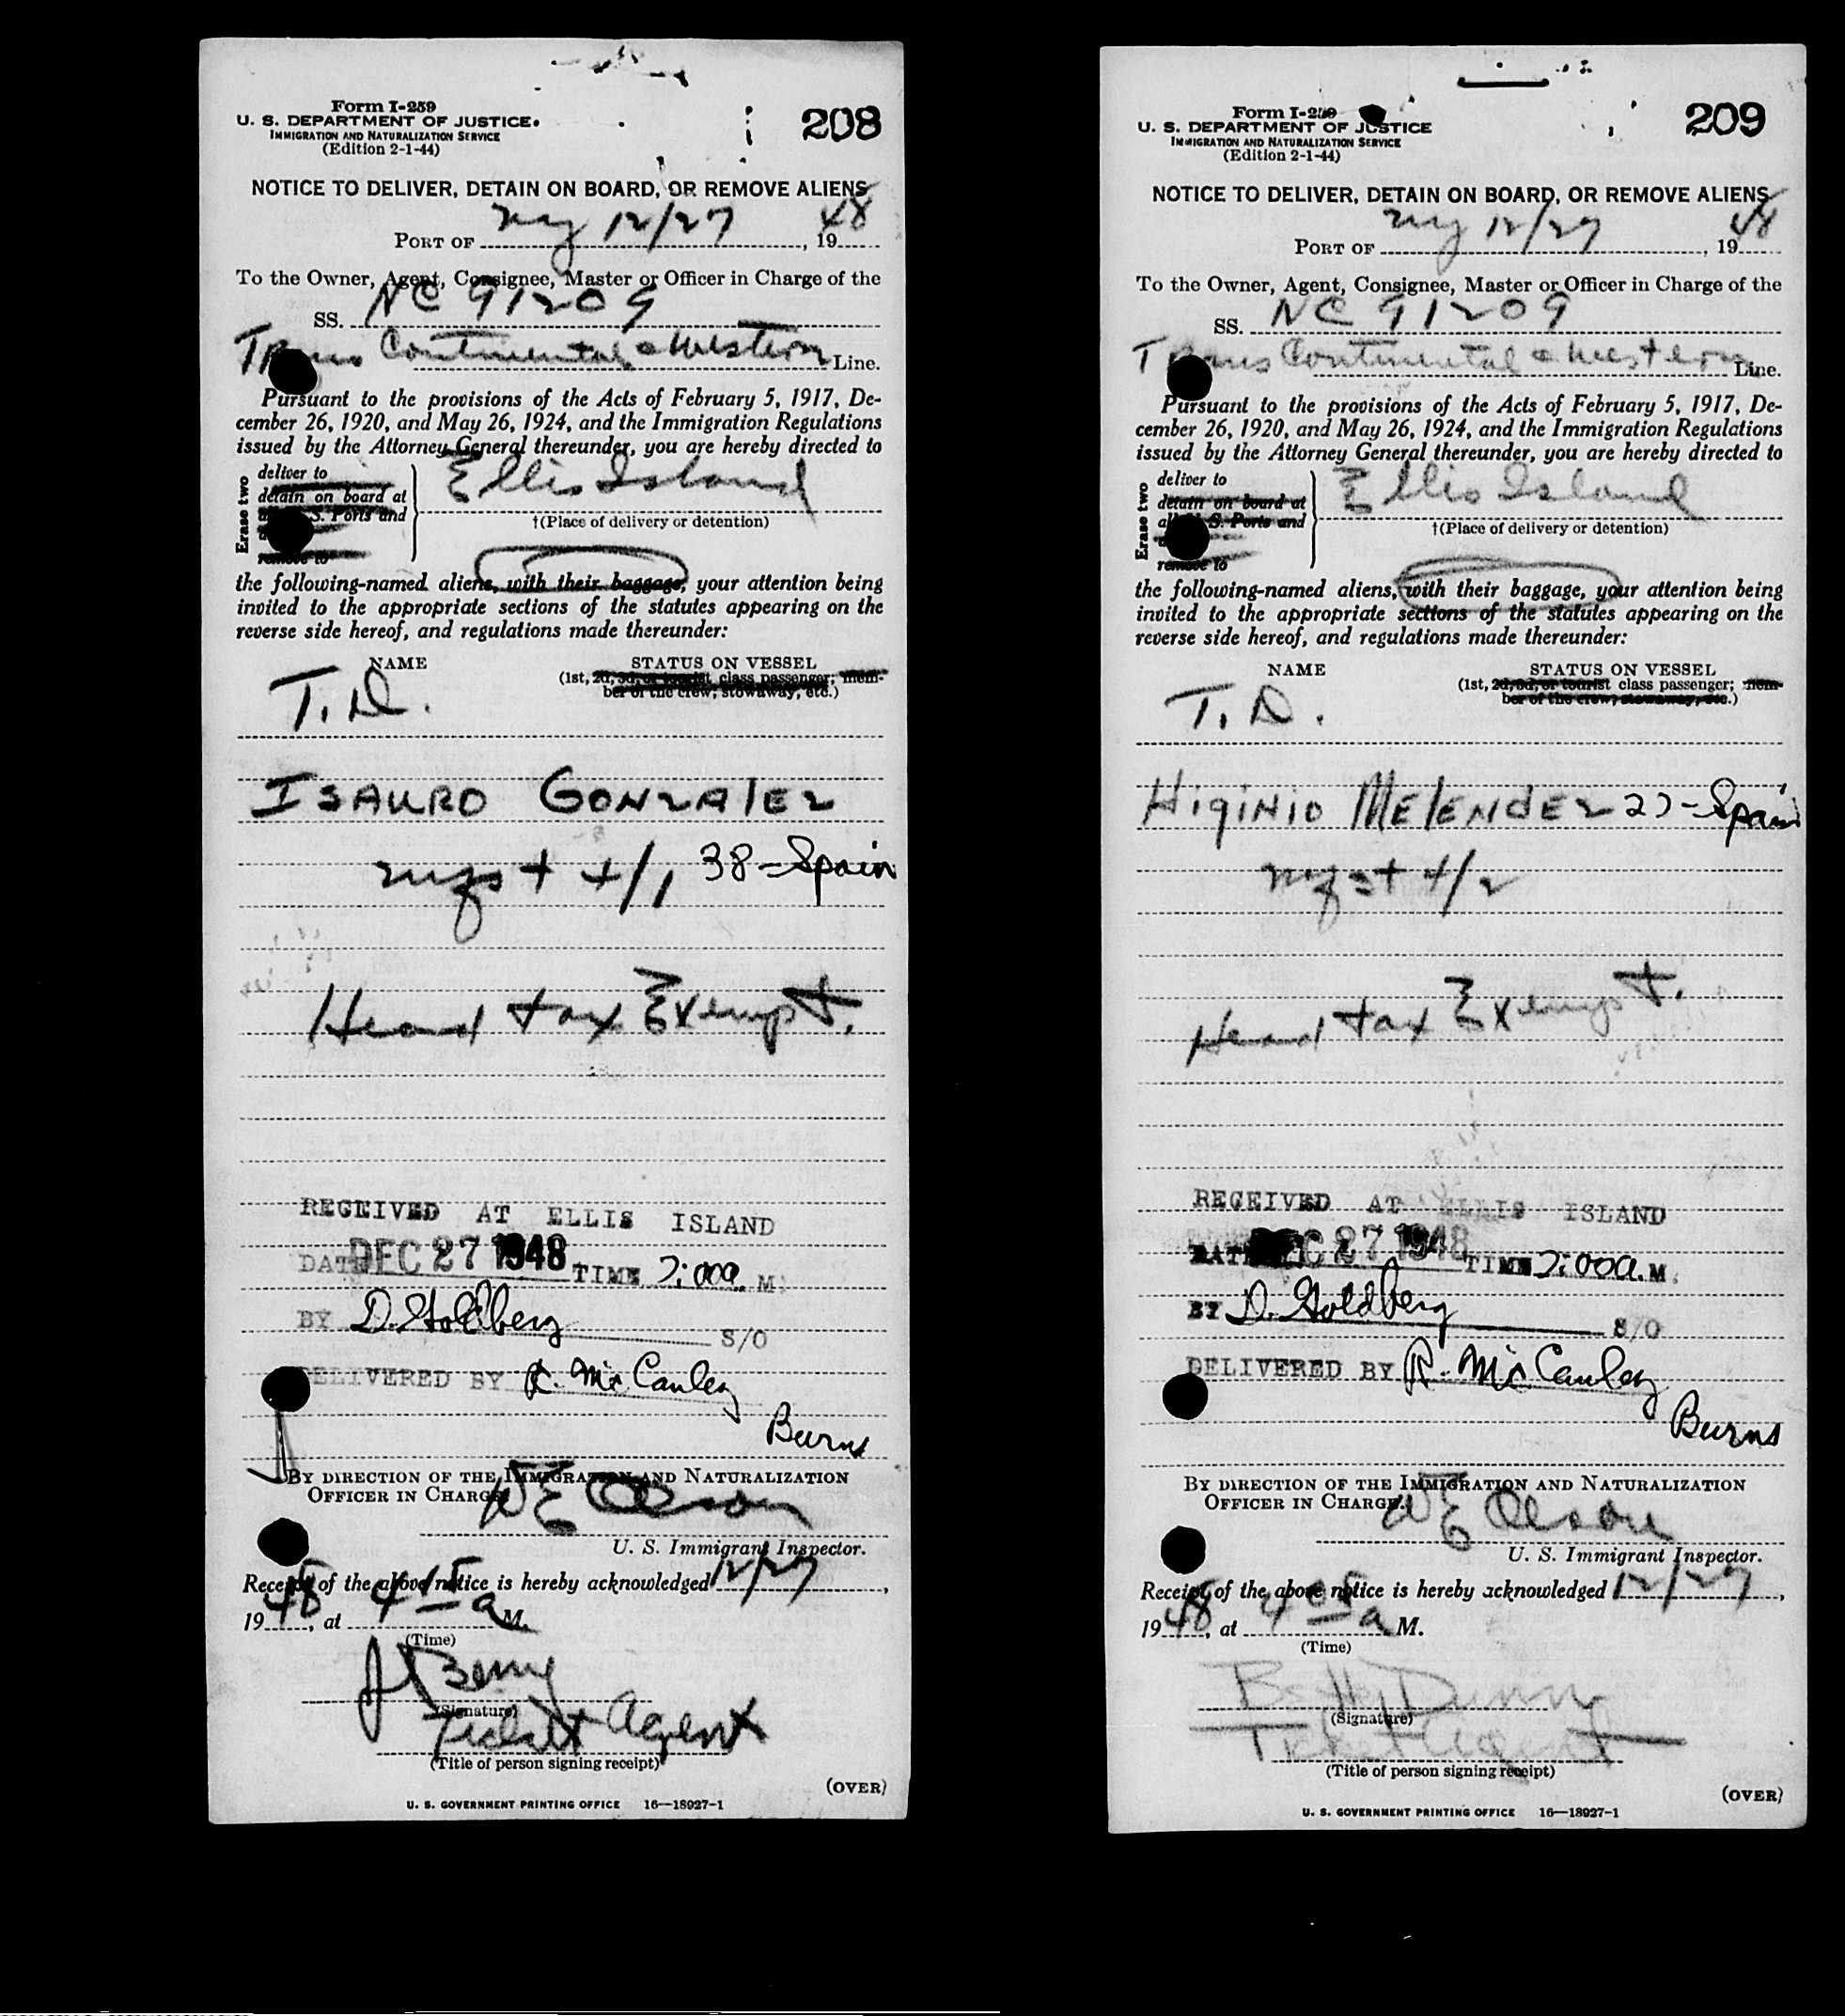 Form I-259
U. S. DEPARTMENT OF JUSTICE
IMMIGRATION AND NATURALIZATION SERVICE
(Edition 2-1-44)
208
NOTICE TO DELIVER, DETAIN ON BOARD, OR REMOVE ALIENS
PORT OF ny 12/27, 1948
To the Owner, Agent, Consignee, Master or Officer in Charge of the
SS. NC 91209
Trans Continental & Western Line.
Pursuant to the provisions of the Acts of February 5, 1917, De-
cember 26, 1920, and May 26, 1924, and the Immigration Regulations
issued by the Attorney General thereunder, you are hereby directed to
Erase two
deliver to
detain on board at
S. Ports and
remove to
Ellis Island
†(Place of delivery or detention)
the following-named aliens, with their baggage, your attention being
invited to the appropriate sections of the statutes appearing on the
reverse side hereof, and regulations made thereunder:
NAME STATUS ON VESSEL
(1st, 2d, 3d, or tourist class passenger; mem-
ber of the crew; stowaway, etc.)
T. D.
ISAURO GONZALEZ
mfst 4/1 38-Spain
Head tax Exempt.
RECEIVED AT ELLIS ISLAND
DATE DEC 27 1948 TIME 7:00a. M.
BY D. Goldberg S/O
DELIVERED BY R. McCauley
Burns
BY DIRECTION OF THE IMMIGRATION AND NATURALIZATION
OFFICER IN CHARGE.
W E Olson
U. S. Immigrant Inspector.
Receipt of the above notice is hereby acknowledged 12/27,
1948, at 415 a M.
(Time)
J Berry
(Signature)
Ticket Agent
(Title of person signing receipt)
(OVER)
U. S. GOVERNMENT PRINTING OFFICE 16—18927-1
Form I-259
U. S. DEPARTMENT OF JUSTICE
IMMIGRATION AND NATURALIZATION SERVICE
(Edition 2-1-44)
209
NOTICE TO DELIVER, DETAIN ON BOARD, OR REMOVE ALIENS
PORT OF ny 12/27, 1948
To the Owner, Agent, Consignee, Master or Officer in Charge of the
SS. NC 91209
Trans Continental & Western Line.
Pursuant to the provisions of the Acts of February 5, 1917, De-
cember 26, 1920, and May 26, 1924, and the Immigration Regulations
issued by the Attorney General thereunder, you are hereby directed to
Erase two
deliver to
detain on board at
all U. S. Ports and
remove to
Ellis Island
†(Place of delivery or detention)
the following-named aliens, with their baggage, your attention being
invited to the appropriate sections of the statutes appearing on the
reverse side hereof, and regulations made thereunder:
NAME STATUS ON VESSEL
(1st, 2d, 3d, or tourist class passenger; mem-
ber of the crew; stowaway, etc.)
T. D.
HIGINIO MELENDEZ 27-Spain
mfst 4/2
Head tax Exempt.
RECEIVED AT ELLIS ISLAND
DATE DEC 27 1948 TIME 7:00a. M.
BY D. Goldberg S/O
DELIVERED BY R. McCauley
Burns
BY DIRECTION OF THE IMMIGRATION AND NATURALIZATION
OFFICER IN CHARGE.
W E Olson
U. S. Immigrant Inspector.
Receipt of the above notice is hereby acknowledged 12/27,
1948, at 4 a M.
(Time)
Betty Dunn
(Signature)
Ticket Agent
(Title of person signing receipt)
(OVER)
U. S. GOVERNMENT PRINTING OFFICE 16—18927-1